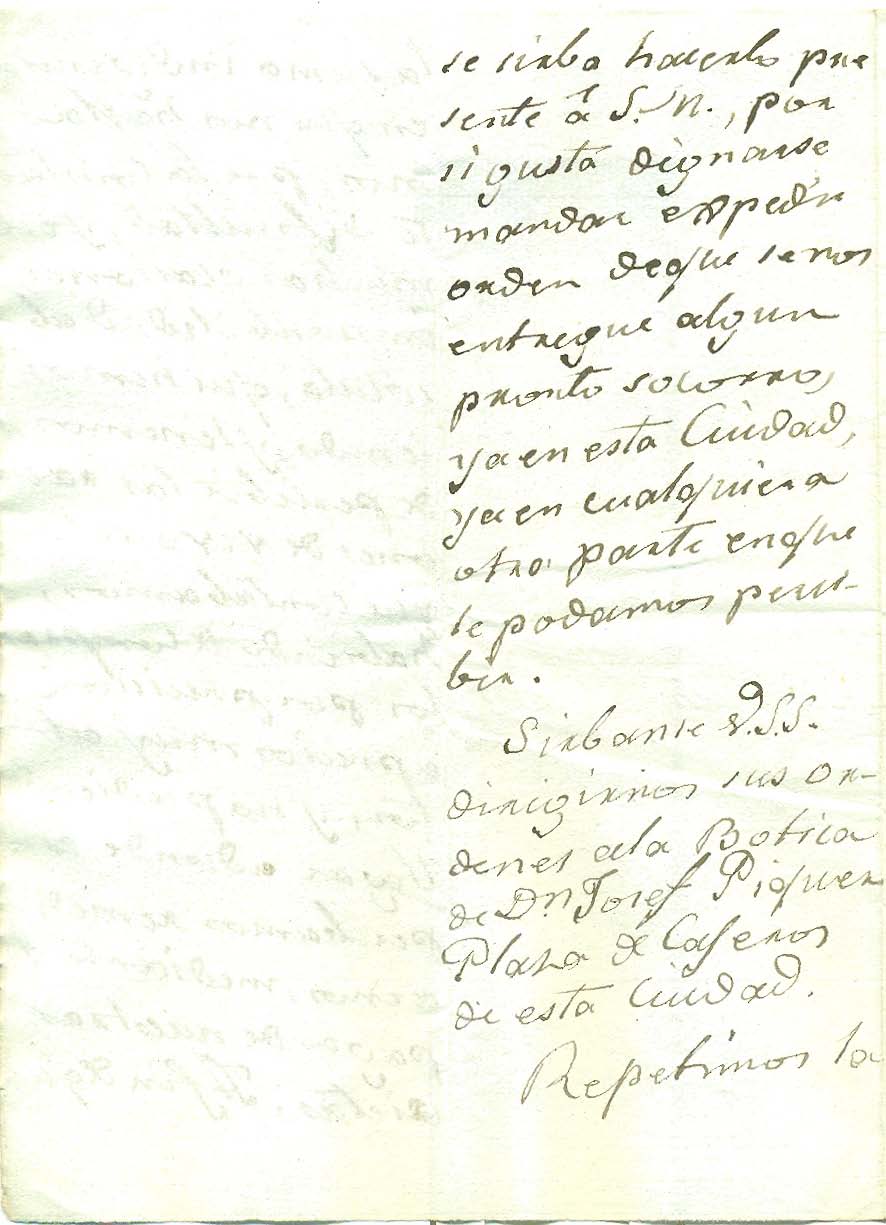 se sirba hacerlo pre
sente á S. M., por
si gusta dignarse
mandar expedir
orden deque senos
entregue algun
pronto socorro,
ya en esta Ciudad,
ya en cualquiera
otra parte enque
le podamos perci-
bir.
Sirbanse V.S.S.
dirigirnos sus or-
denes ala Botica
de Dn. Josef Piquer
Plaza de Caseros
de esta Ciudad.
Repetimos la